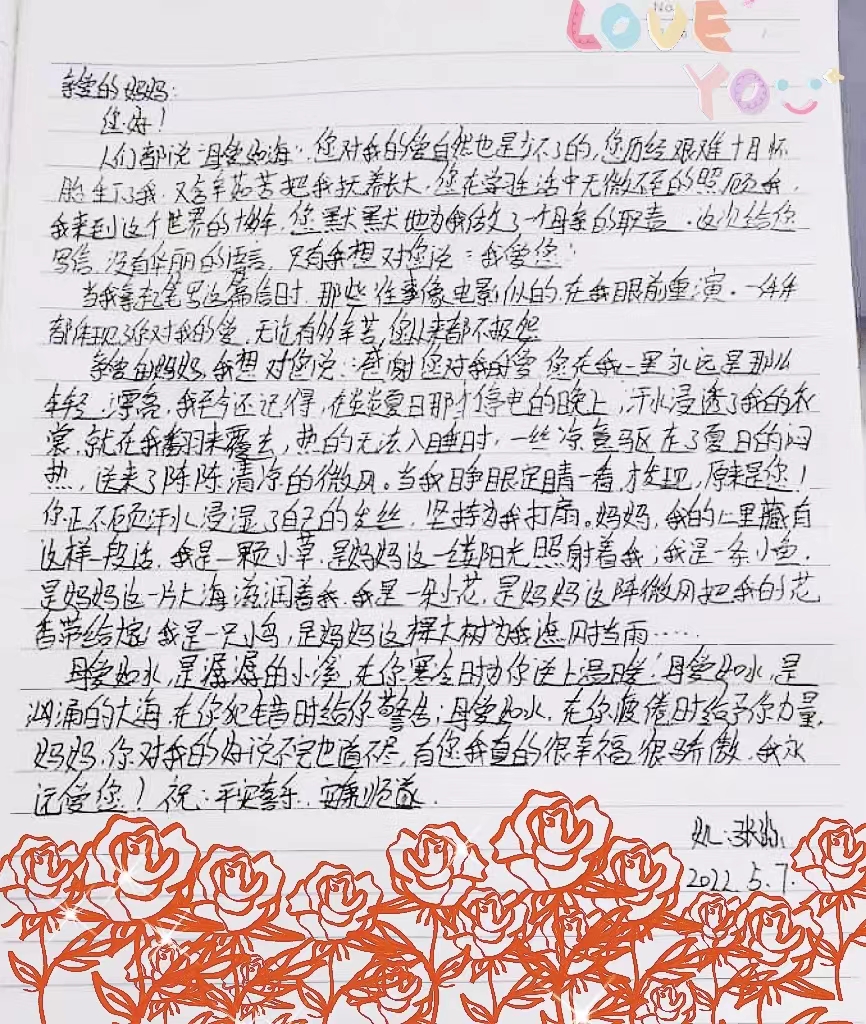 LOVE
YOU
亲爱的妈妈:
您好!
人们都说"母爱如海",您对我的爱自然也是少不了的,您历经艰难十月怀
胎生下我,又含辛茹苦把我抚养长大,您在学习生活中无微不至的照顾我,
我来到这个世界的十几年,您默默地为我做了一个母亲的职责。这次给您
写信,没有华丽的语言,只有我想对您说:我爱您!
当我拿起笔写这篇信时,那些往事像电影似的,在我眼前重演。一件件
都体现了你对我的爱,无论有多辛苦,您从来都不抱怨
亲爱的妈妈,我想对您说:感谢您对我的爱,您在我心里永远是那么
年轻,漂亮,我至今还记得,在炎炎夏日那个停电的晚上,汗水浸透了我的衣
裳,就在我翻来覆去,热的无法入睡时,一丝凉意驱走了夏日的闷
热,送来了阵阵清凉的微风。当我睁眼定睛一看,才发现,原来是您!
你正不顾汗水浸湿了自己的发丝,坚持为我打扇。妈妈,我的心里藏着
这样一段话,我是一颗小草,是妈妈这一缕阳光照射着我;我是一条小鱼,
是妈妈这一片大海滋润着我,我是一朵小花,是妈妈这阵微风把我的花
香带给 我是一只小鸟,是妈妈这棵大树为我遮风挡雨……
母爱如水,是潺潺的小溪,在你寒冷时为你送上温暖;母爱如水,是
汹涌的大海,在你犯错时给你警告;母爱如水,在你疲倦时给予你力量,
妈妈,你对我的好说不完也道不尽,有您我真的很幸福,很骄傲,我永
远爱您!祝:平安喜乐,安康顺遂。
张
2022.5.7.